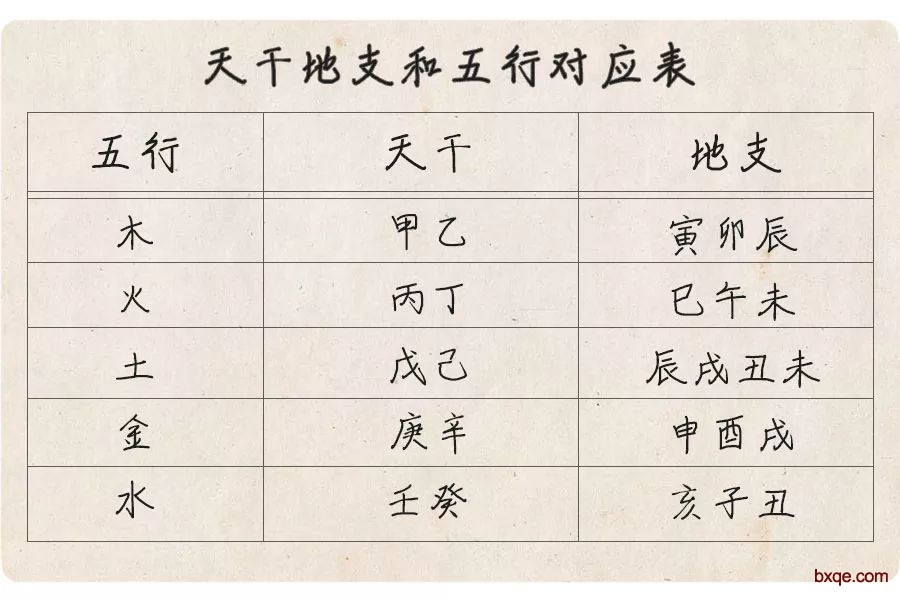 天干地支和五行对应表
五行 天干 地支
木 甲乙 寅卯辰
火 丙丁 巳午未
土 戊己 辰戌丑未
金 庚辛 申酉戌
水 壬癸 亥子丑
bxqe.com